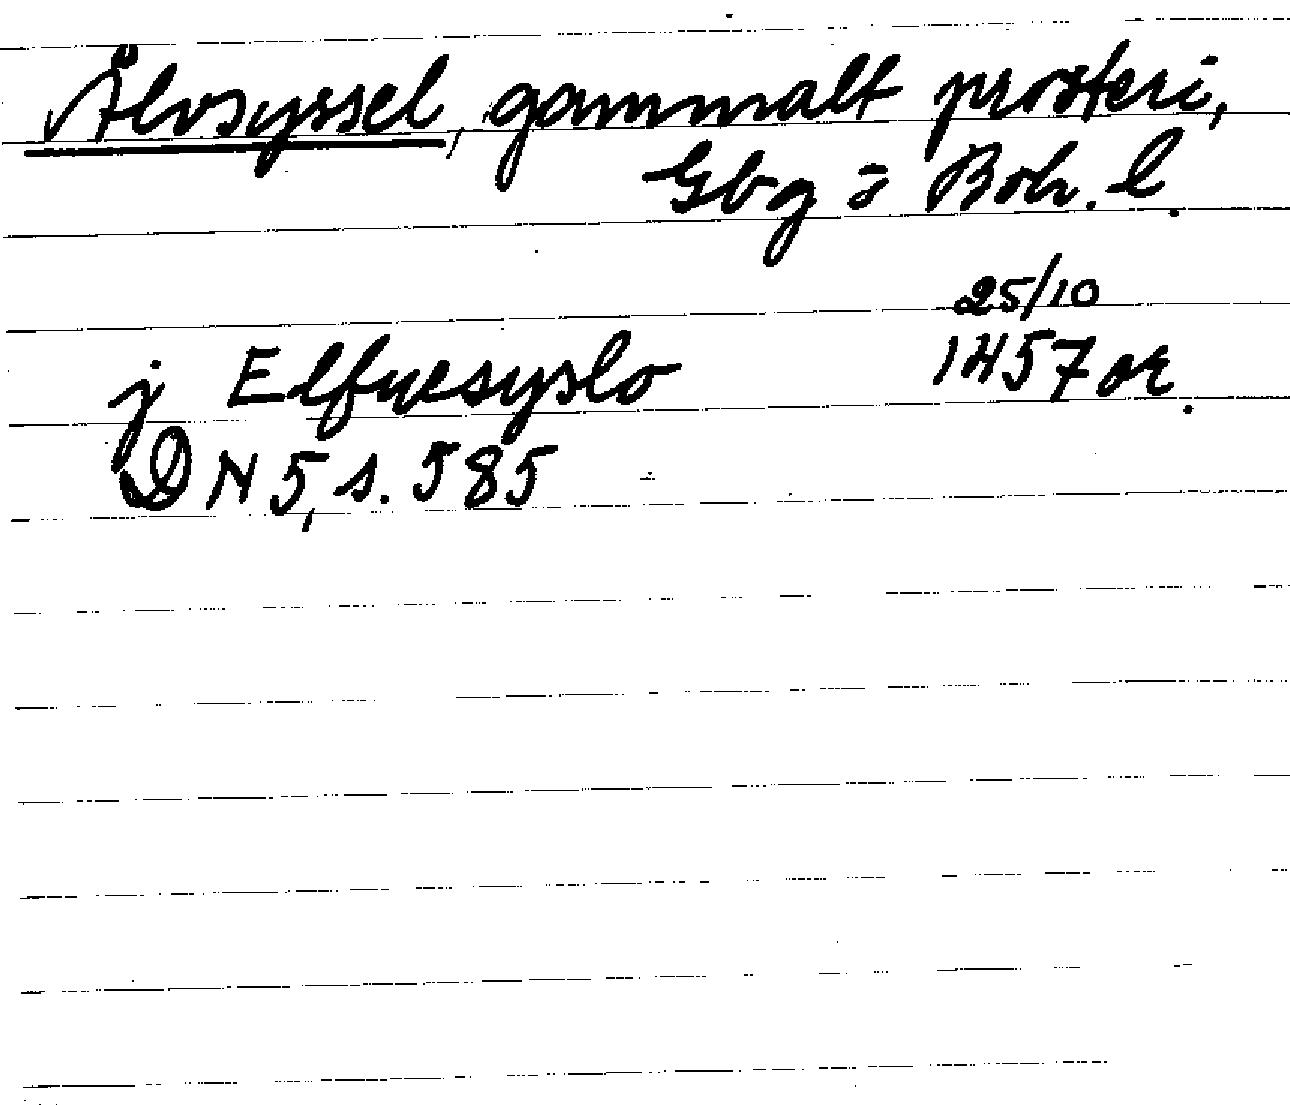 Älvsyssel, gammalt prosteri,
Gbg o Boh. l.
25/10
j Elfwesyslo 1457 or.
DN 5, s. 585